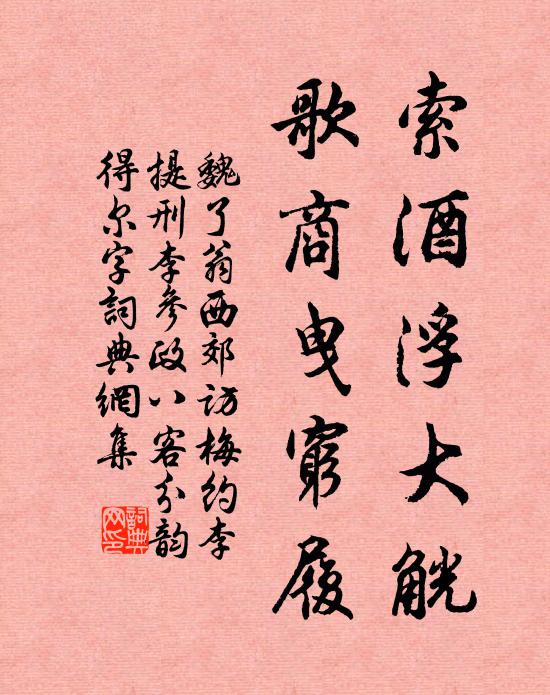 索酒浮大觥
歌商曳窮履
魏了翁西郊訪梅約李
提刑李參政八客分韵
得尔字詞典網集
詞典网印